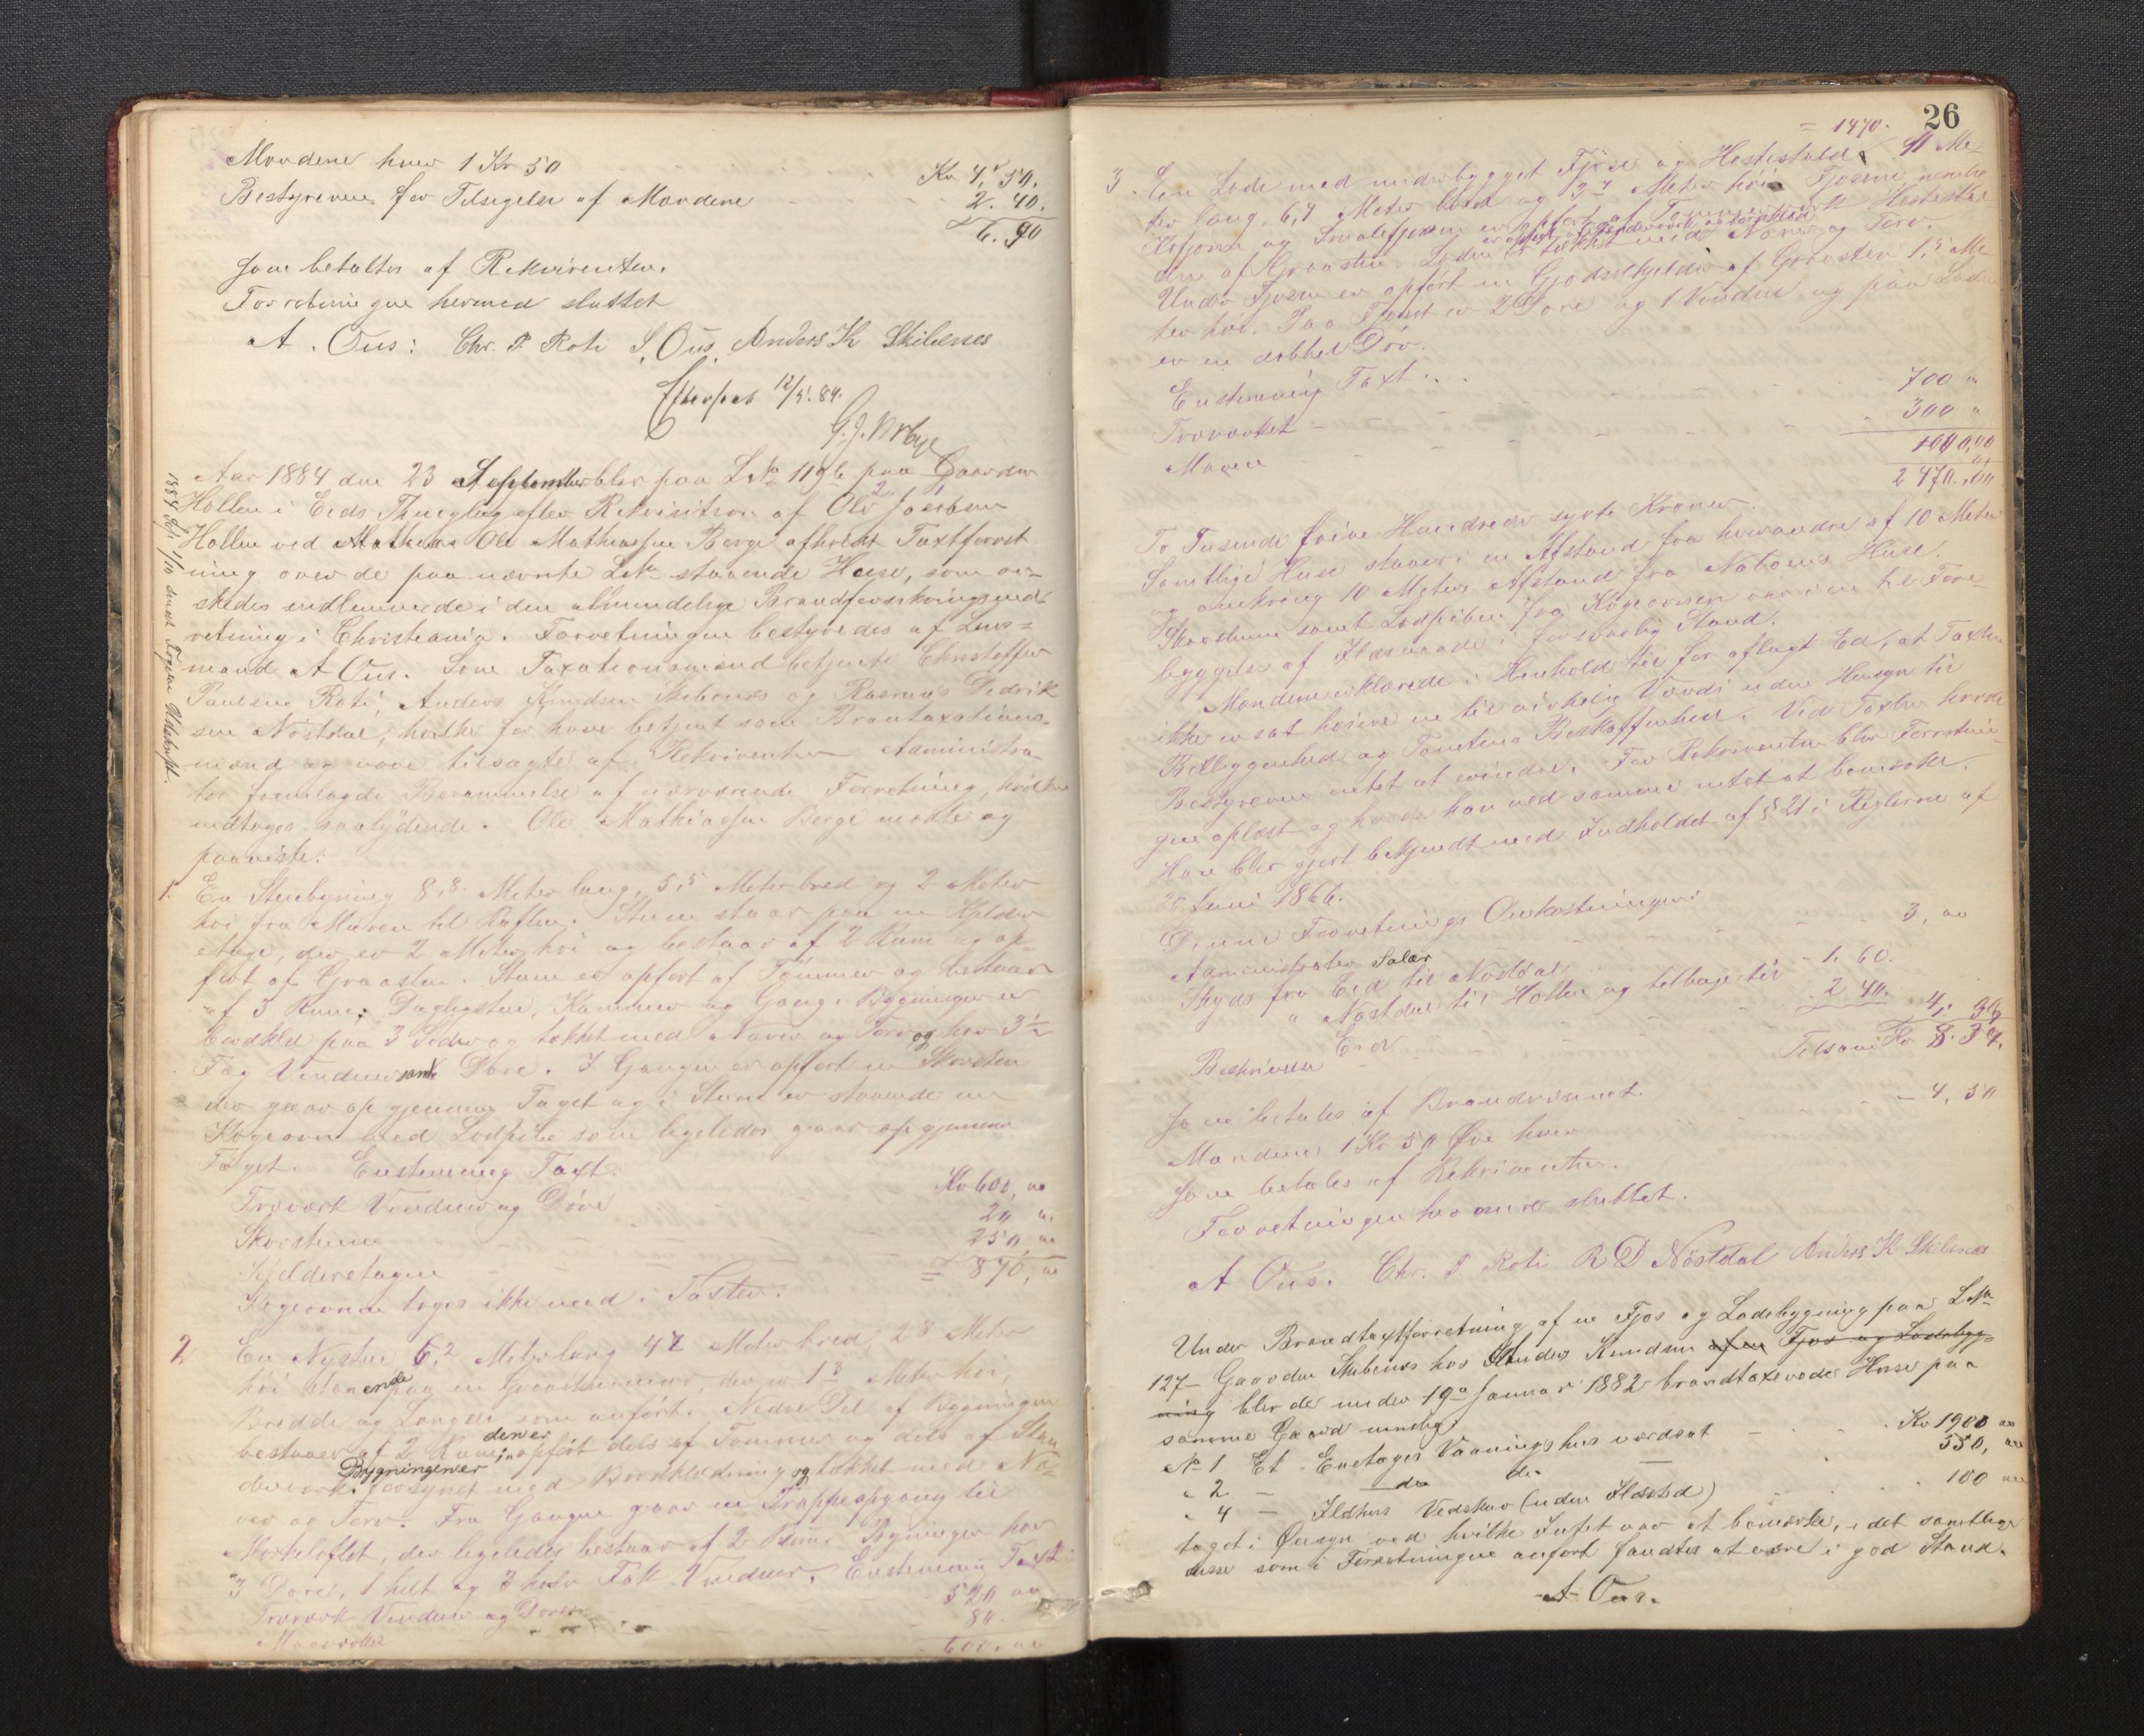 Mændene hver 1 Kr 50 Kr 4, 50.
Bestyreren for Tilsigelse af Mændene 2. 40.
6. 90
som betaltes af Rekvirenten.
Forretningen hermed sluttet
A. Ous: Chr. P. Roti S. Ous. Anders K Skibenes
Efterseet 12/5. 84.
Aar 1884 den 23 September blev paa LNo 119b paa Gaarden
Hollen i Eids Thinglag efter Rekvisition af Ole Jacobsen
Hollen ved Ole Mathiassen Berge afholdt Taxtforret
ning over de paa nævnte LNo staaende Huse, som øn=
skedes indlemmede i den almindelige Brandforsikringsind=
retning i Christiania. Forretningen bestyredes af Lens=
mand A Ous. Som Taxationsmænd betjente Christoffer
Paulsen Roti, Anders Knudsen Skibenes og Rasmus Didrik
sen Nøstdal, hvilke før have betjent som Brantaxations-
mænd og vare tilsagte af Rekvirenten Administra=
tor fremlagde Berammelse af nærværende Forretning, hvilken
indtages saalydende. Ole Mathiassen Berge mødte og
paaviste:
1884 1/10 sendt Fogden Udskrift.
1. En Stuebygning 8,8 Meter lang, 5,5 Meter bred og 2 Meter
høi fra Muren til Raften. Stuen staar paa en Kjelder
etage, der er 2 Meter høi og bestaar af 2 Rum og op=
ført af Graasten. Stuen er opført af Tømmer og bestaar
af 3 Rum: Dagligstue, Kammer og Gang. Bygningen er
bordklæd paa 3 Sider og tækket med Næver og Torv og har 3 1/2
Fag Vinduer samt Døre. I Gangen er opført en Skorsten
der gaar op gjennem Taget og i Stuen er staaende en
Kogeovn med Lodpibe som ligeledes gaar op gjennem
Taget. Enstemmig Taxt:
Træværk Vinduer og Døre Kr 600, 00
Skorstenen 20 00
Kjelderetagen 250, 00
= 870, 00
Kogeovnen toges ikke med i Taxten.
2 En Nystue 6,2 Meter lang 4 Meter bred, 2 8 Meter
høi staaende paa en Graastensmur, der er 1 8 Meter høi,
Bredde og Længde som anført. Nedre Del af Bygningen
bestaaer af 2 Rum, den er opført dels af Tømmer og dels af Sten
derværk. Bygningen er forsynet med Bordklædning og tækket med Næ=
ver og Torv. Fra Gangen gaar en Trappeopgang til
Mørkeloftet, der ligeledes bestaar af 2 Rum. Bygningen har
3 Døre, 1 helt og 3 halv Fak Vinduer. Enstemmig Taxt
Træværk Vinduer og Døre 520 00
Murværket 80.
600. 00
26
= 1470.
3. En Lade med underbygget Fjøse og Hestestald, 11 Me=
ter lang, 6,4 Meter bred og 3 7 Meter høi. Fjøsene nemlig
Kofjøsen og Smalefjøsen er opført af Tømmer, Hestestal
den af Graasten. Laden er opført af Stenderværk og bordklæd tækket med Næver og Torv.
Under Fjøsen er opført en Gjødselkjelder af Graasten 1,5 Me=
ter høi. Paa Fjøset er 2 Døre og 1 Vindue og paa Laden
er en dobbel Dør.
Enstemmig Taxt:
Træværket 700 "
Muren 300 "
1000,00
2 470,00
To Tusinde fire Hundrede sytti Kroner.
Samtlige Huse staaer i en Afstand fra hverandre af 10 Meter
og omkring 10 Meters Afstand fra Naboens Huse.
Skorstenen samt Lodpiben fra Kogeovnen var i en til Fore
byggelse af Ildsvaade i forsvarlig Stand.
Mændene erklærede i Henhold til før aflagt Ed, at Taxten
ikke er sat høiere en til virkelig Værdi uden Hensyn til
Beliggenhed og Tomtens Beskaffenhed. Ved Taxten havde
Bestyreren intet at erindre. For Rekvirenten blev Forretnin
gen oplæst og havde han ved samme intet at bemærke.
Han blev gjort bekjendt med Indholdet af § 21 i Reglerne af
20 Juni 1866.
Denne Forretnings Omkostninger:
Administrator Salær 3, 00
Skyds fra Eid til Nøstdal 1. 60.
" Nøstdal til Hollen og tilbage til
Eid 2 40. 4,
Beskrivelse
Tilsam Kr
som betales af Brandvæsenet.
Mændene 1 Kr 50 Øre hver - 4, 50
som betales af Rekvirenten.
Forretningen hermed sluttet.
A Ous. Chr. P. Roti R D Nöstdal Anders K Skibenes
Under Brandtaxtforretning af en Fjøs og Ladebygning paa LNo
127 - Gaarden Skibenes hos Anders Knudsen af en Fjøs og Ladebyg=
ning blev de under 19de Januar 1882 brandtaxerede Huse paa
samme Gaard nemlig:
No 1 Et Enetages Vaaningshus værdsat Kr 1900 00
" 2 - do do 550, 00
" 4 - Ildhus Vedskur (uden Ildsted) 100 00
taget i Øiesyn ved hvilke Intet var at bemærke, idet samtlige
disse som i Forretningen anført fandtes at være i god Stand.
A Ous.